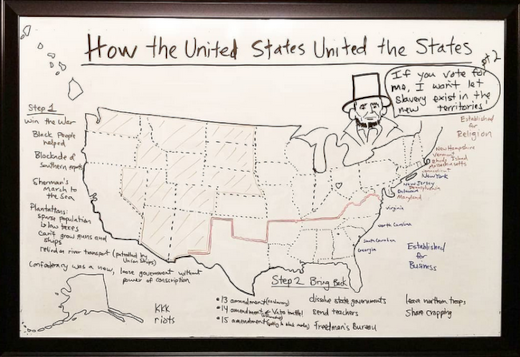 How the United States United the States
pt 2
If you vote for
me, I won't let
slavery exist in the
new territories!
Step 1
win the War
Black People
helped
Blockade of
Southern ports
Sherman's
march to
the Sea
Plantations:
sparse population
below trees
can't grow guns and
ships
relied on river transport (patrolled by
Union ships)
Confederacy was a new, loose government without
power of conscription
Established
for
Religion
New Hampshire
Vermont
Rhode Island
Massachusetts
New York
New Jersey
Pennsylvania
Delaware
Maryland
Virginia
North Carolina
South Carolina
Georgia
Established
for
Business
Step 2 Bring Back
KKK
riots
*13 amendment
*14 amendment
*15 amendment
dissolve state governments
send teachers
freedman's Bureau
leave northern troops
Share cropping